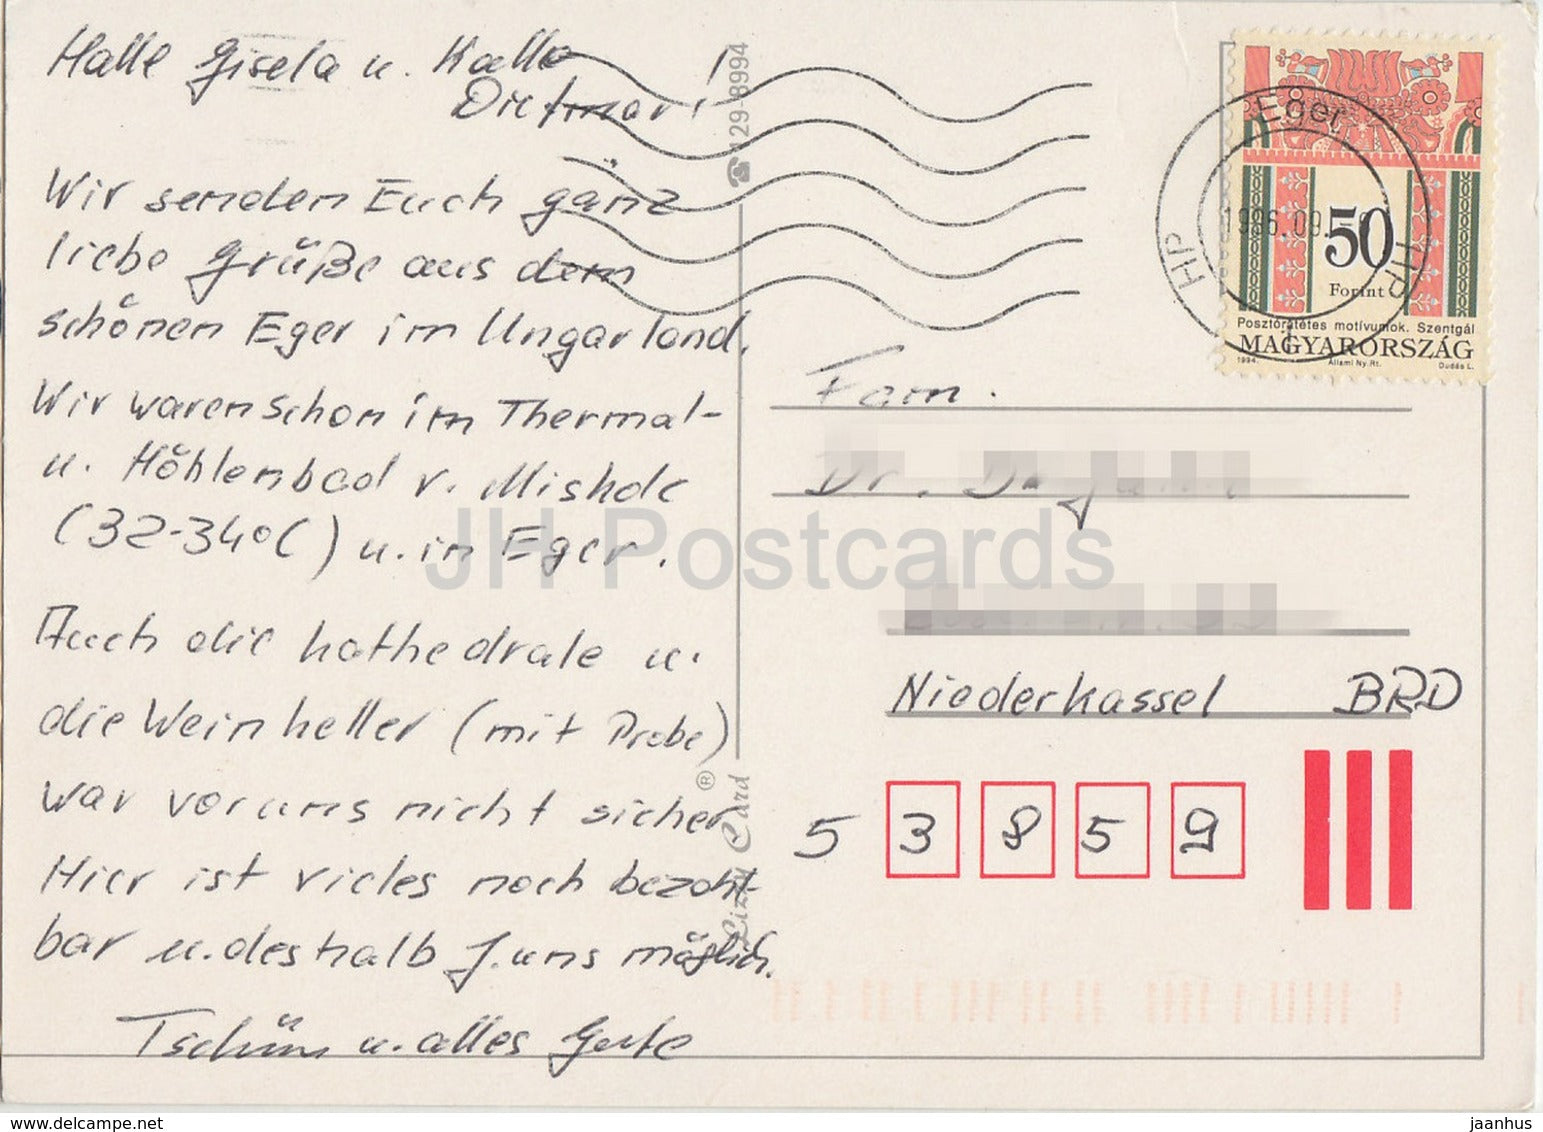 Halle Gisela u. Kalle
Dietmar!
Wir senden Euch gänz
liebe Grüße aus dem
schönen Eger im Ungarland.
Wir waren schon im Thermal-
u. Höhlenbad v. Misholc
(32-34°C) u. in Eger.
Auch die Kathedrale u.
die Weinkeller (mit Probe)
war vor uns nicht sicher
Hier ist vieles noch bezahl-
bar u. deshalb f. uns möglich.
Tschüss u. alles Gute
☎ 129-8994
Lizzy Card ®
Eger
HP HP
1996.09.
50
Forint
Posztóratétes motívumok. Szentgál
MAGYARORSZÁG
1994. Állami Ny. Rt. Dudás L.
Fam.
Dr.
Niederkassel BRD
5 3 8 5 9
JH Postcards
https://www.delcampe.net
jaanhus